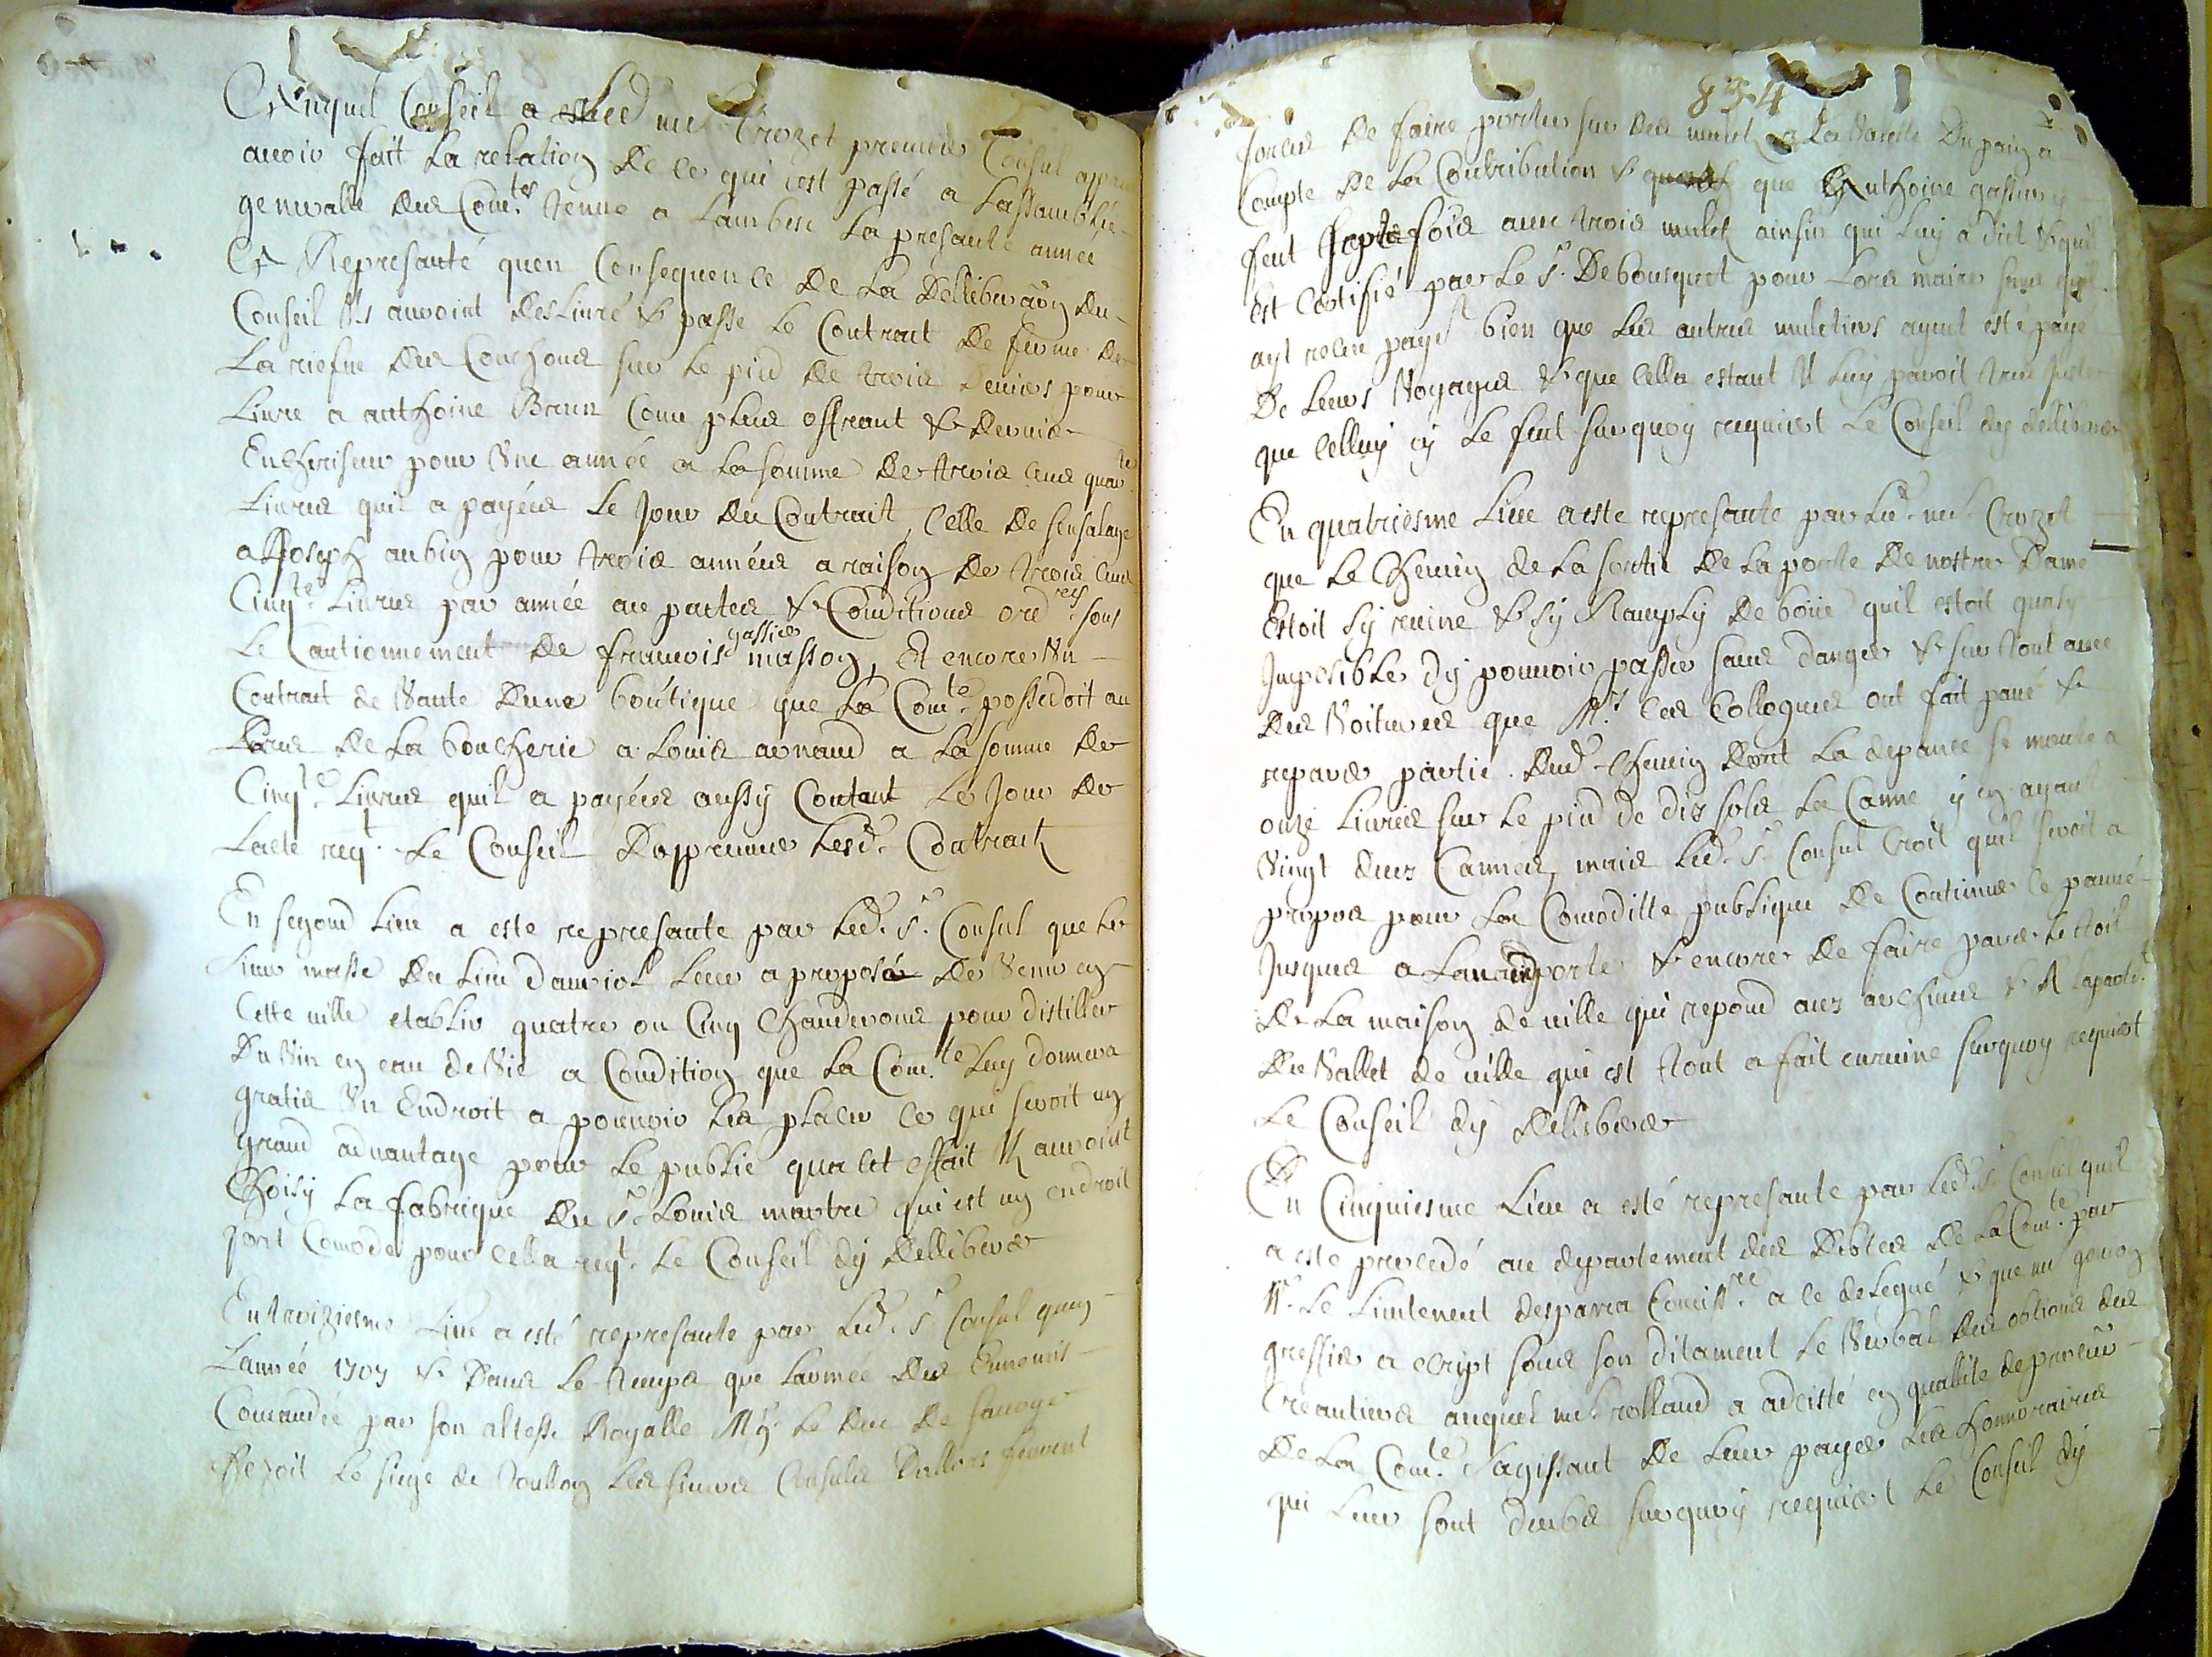 Auquel Conseil a led me Crozet premier Consul apres
avoir fait la relation de ce qui cest passé a Lassamblée
generalle des Com.tes tenue a Lambesc la presante année
Et Represanté quen Consequence de la Delliberaõn du
Conseil Ils auroint deslivré & passe le Contrait de ferme de
la riefue des Couchons sur le pied de trois deniers pour
Livre a anthoine Brun Come plus offrant & dernier
Encherisseur pour Une année a la somme de trois cens quar.te
Livres quil a payées le Jour du Contrait, Celle de sensalage
a Joseph aubin pour trois années a raison de trois cens
Cinq.te Livres par année au pactes & Conditions ord.res sous
Le Cautionnement de francois gassier masson, Et encore Un
Contrait de Vante dune boutique que la Com.te possedoit au
de la boucherie a Louis arnaud a la somme de
Cinq.te Livres quil a payées aussy Contant le Jour de
Lacte req.t le Conseil dapprouver lesd. Contraitz
En segond Lieu a este represante par led. s.r Consul que le
sieur masse du Lieu dauriol Leur a proposé de Venir en
Cette ville etablir quatre ou Cinq Chauderons pour distiller
Du Vin en eau de Vie a Condition que la Com.te Luy donnera
gratis Un Endroit a pouvoir les placer ce qui seroit un
grand advantage pour le public qua cet effait Ilz auroint
Choisy La fabrique du s.r Louis martre qui est un endroit
fort Comode pour cella req.t le Conseil dy Delliberer
En troiziesme Lieu a esté represante par led. s.r Consul quen
Lannée 1707 & Dans le temps que Larmée des Ennemis
Comandée par son altesse Royalle Mg.r le duc de savoye
le siege de toullon les sieurs Consuls Dallors feurent
834
forces de faire porter sur des mulets a la Valette Du pain a
Compte de la Contribution & que Anthoine gassier y
feut sept fois avec trois mulets ainsin qui luy a dict & quil
est Certifié par le s.r Debousquet pour Lors maire sans quil
ayt rolle payé bien que les autres muletiers ayent esté payé
De leurs Voyages & que cella estant Il luy paroit tres Juste
que celluy cy le feut surquoy requiert le Conseil dy delliberer
En quatriesme Lieu a este represante par led. me Crozet
que le Chemin de la sortie de la porte de nostre Dame
Estoit sy ruiné & sy Ramply de boüe quil estoit quasy
Imposible dy pouvoir passer sans danger & sur tout avec
des Voitures que M.rs ces Collegues ont fait pavé &
reparer partie dud. chemin dont la depance se monte a
onze Livres sur le pied de dix sols la Canne y en ayant
Vingt deux Cannes, mais led. s.r Consul Croit quil seroit a
propos pour la Comoditte publique de Continuer ce pavé
Jusques a Lavandporte & encore de faire parer le toit
de la maison de ville qui repond aux archives & a lapart.t
du Vallet de ville qui est tout a fait enruine surquoy requiert
le Conseil dy Delliberer
En Cinquiesme Lieu a esté represante par led. s.r Consul quil
a este procedé au departement des Debtes de la Com.te par
M.r le Lieutenent desparra Comiss.re a ce delegué & que me
greffier a escript sous son ditament le Verbal des options des
Creantiers auquel me rolland a adcisté en quallité de procur
De la Com.te Sagissant de leur payer les honnoraires
qui leur sont deubs surquoy requiert le Conseil dy